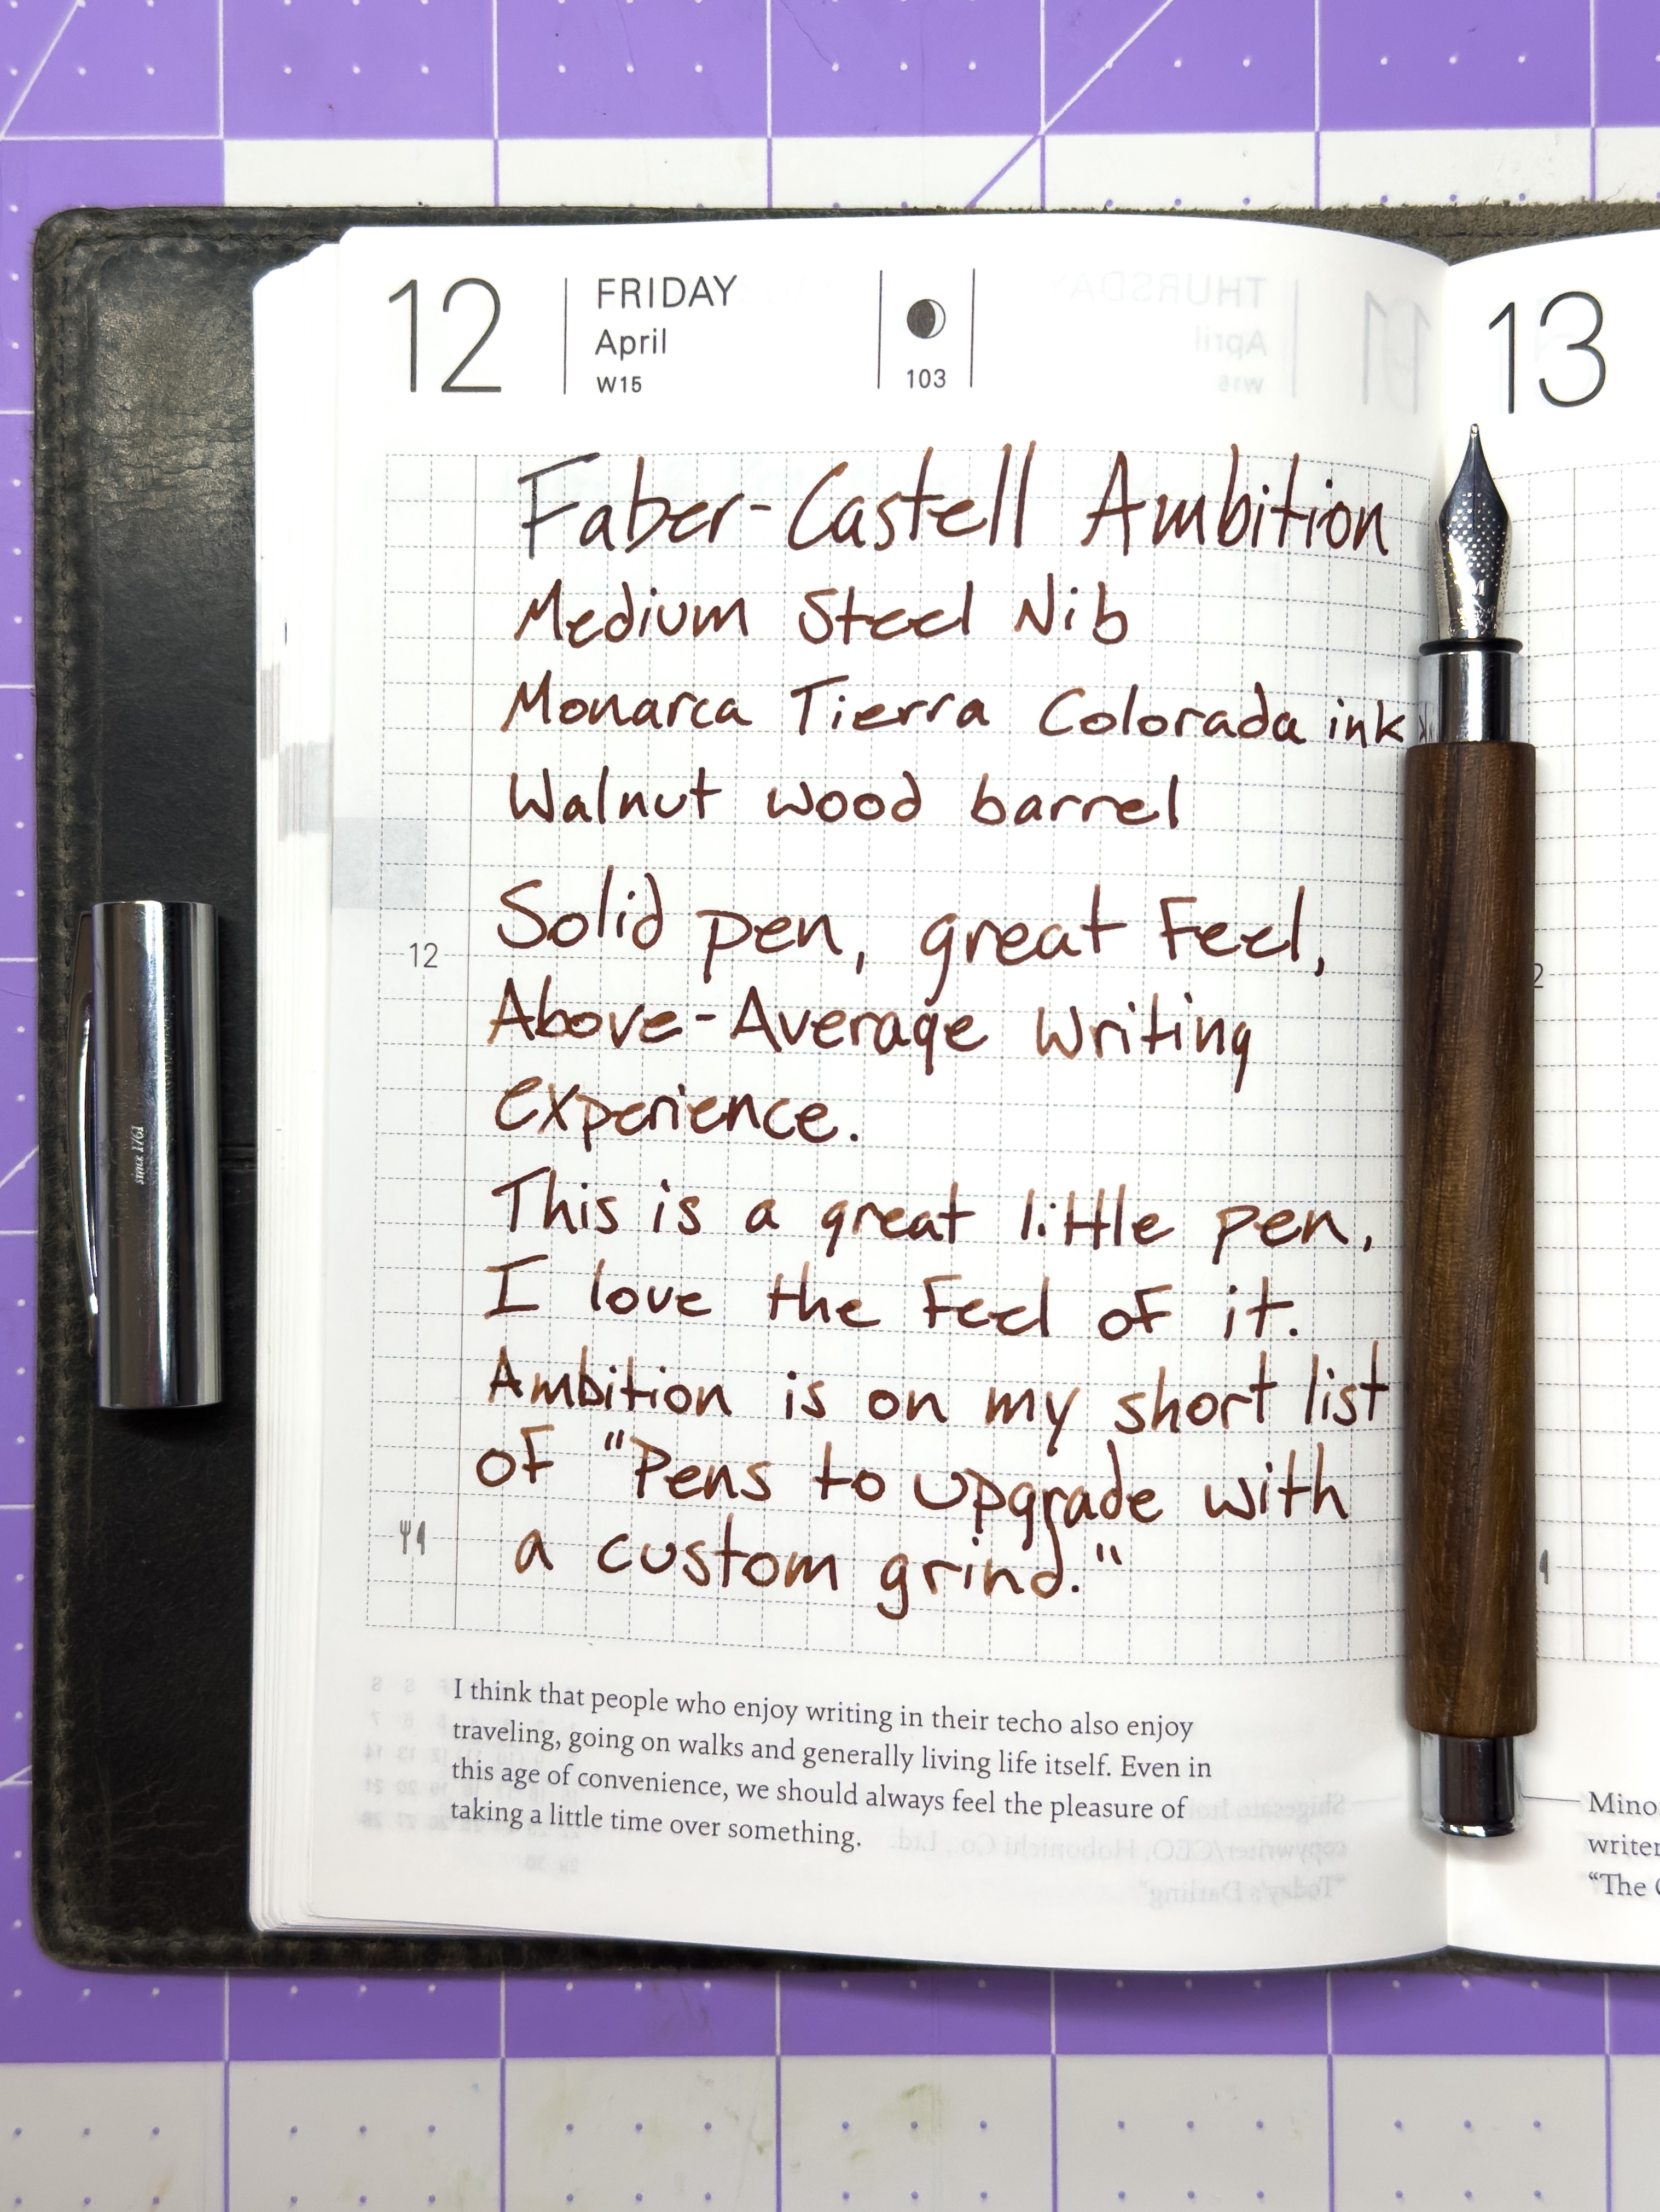 12
FRIDAY
April
W15
103
13
Faber-Castell Ambition
Medium Steel Nib
Monarca Tierra Colorada ink
Walnut wood barrel
Solid pen, great Feel,
12
Above-Average Writing
experience.
This is a great little pen,
I love the Feel of it.
Ambition is on my short list
of "Pens to upgrade with
a custom grind."
I think that people who enjoy writing in their techo also enjoy
traveling, going on walks and generally living life itself. Even in
this age of convenience, we should always feel the pleasure of
taking a little time over something.
Mino
writer
"The
since 1761
M